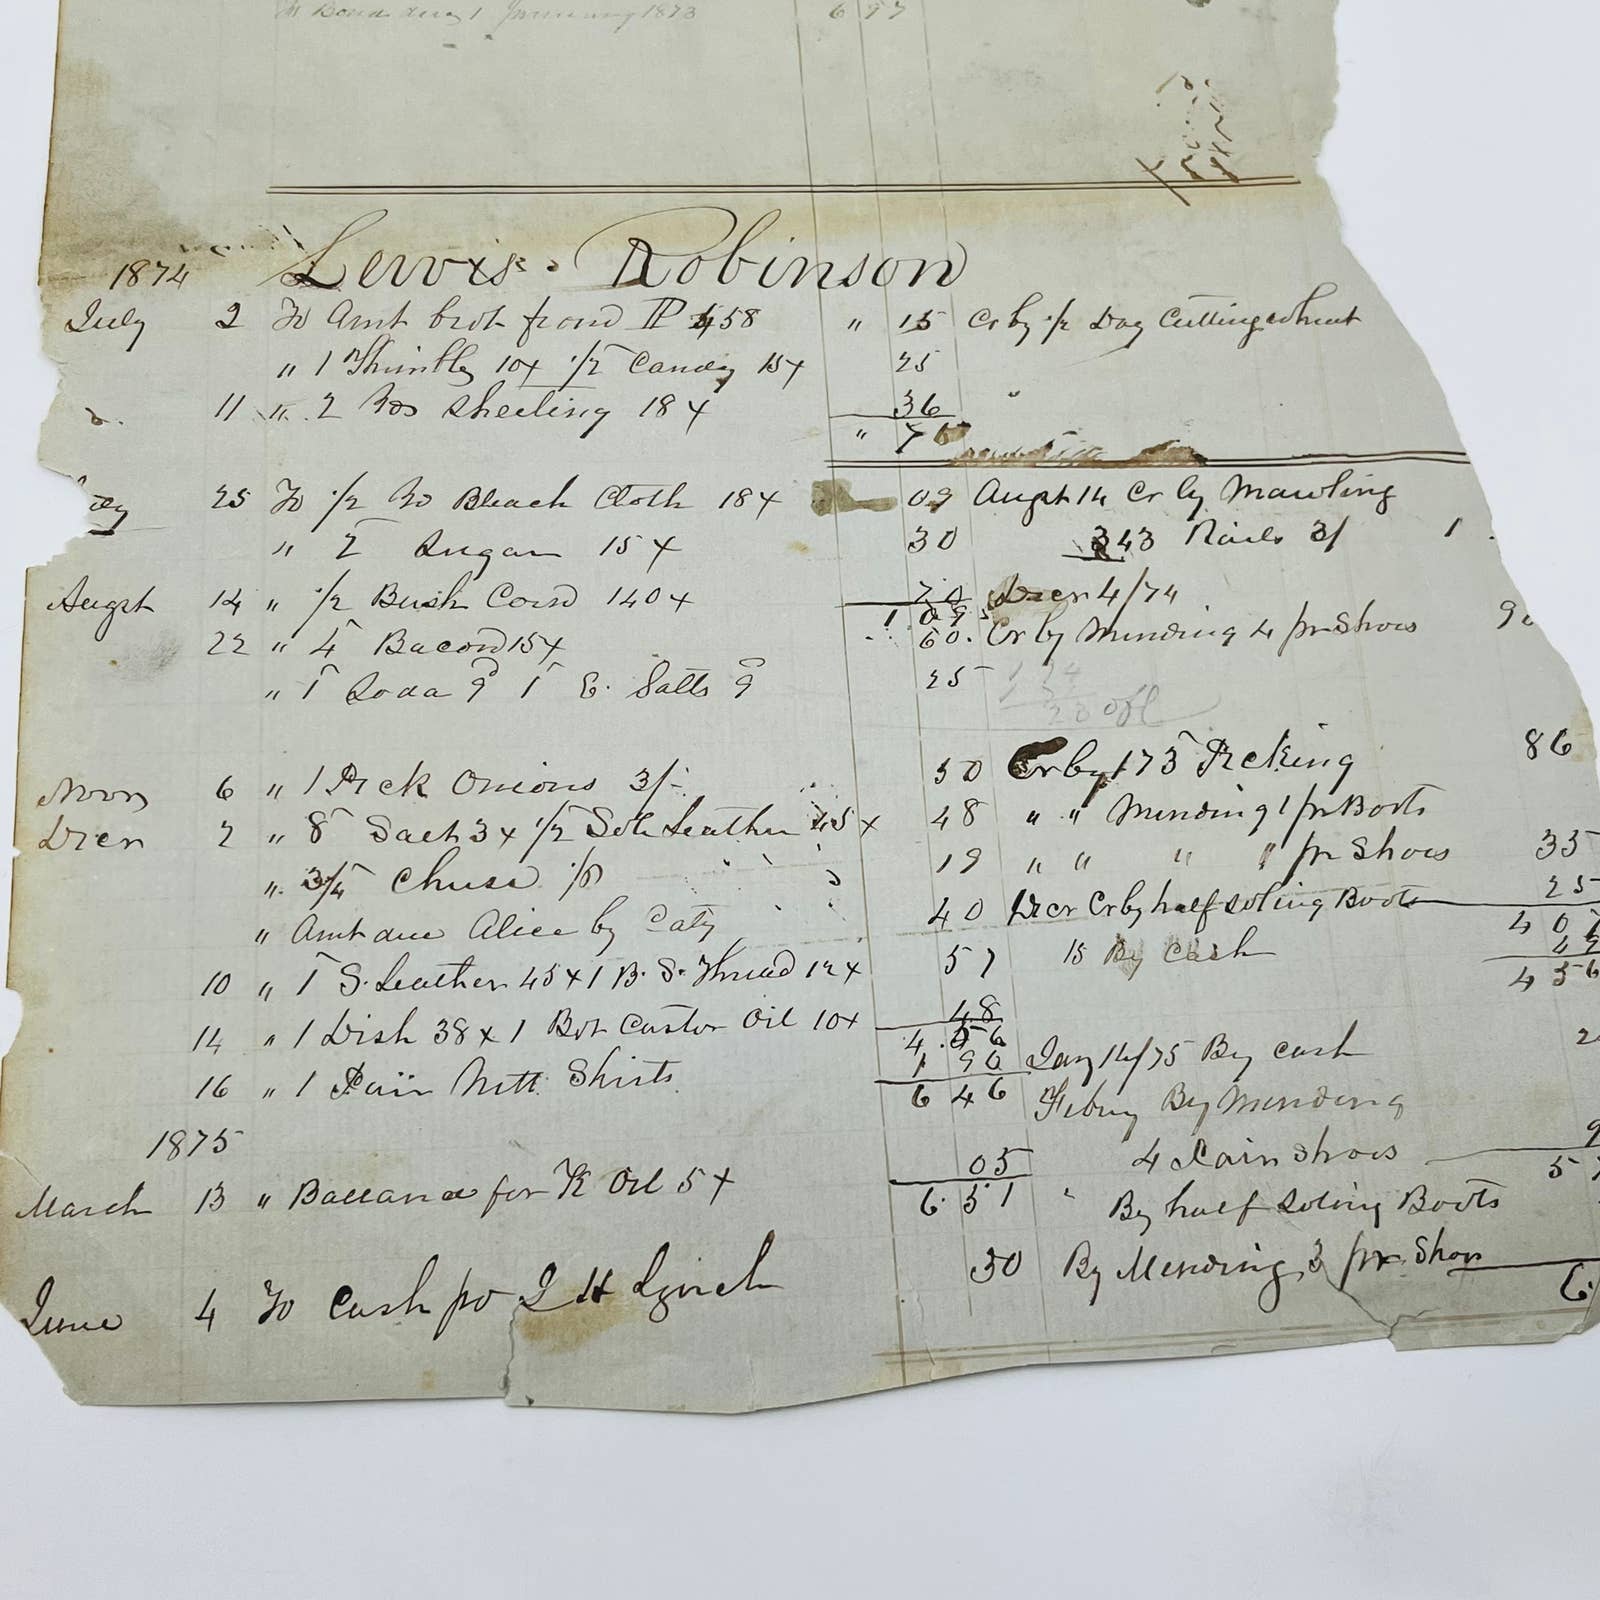 1 January 1873 6 97
Lewis Robinson
1874
July 2 To Amt brot from P 458 " 15 Cr by 1/2 Day Cutting wheat
" 1 Thimble 10 1/2 Candy 15 25
11 " 2 Yds Sheeting 18 36
" 76
25 To 1/2 Yd Bleach Cloth 18 09 Augst 14 Cr by Mawling
" 2 Sugar 15 30 343 Rails 3/ 1
Augst 14 " 1/2 Bush Corn 140 70 Decr 4/74
1 09
22 " 4 Bacon 15 60 Cr by Mending 4 pr Shoes 90
" 1 Soda 9 1 E. Salts 9 25
Novr 6 " 1 Peck Onions 3/- 50 Cr by 173 Picking 86
Decr 2 " 8 Salt 3 1/2 Sole Leather 45 48 " " Mending 1 pr Boots
" 3/4 Cheese 19 " " " " pr Shoes 35
" Amt due Alice by Caty 40 Decr Cr by half soling Boots 25
4 07
10 " 1 S. Leather 45 1 B. S. Thread 12 57 15 By Cash
4 56
14 " 1 Dish 38 1 Bot Castor Oil 10 48
4.56
16 " 1 Pair Nett Shirts 1 90 Jany 14/75 By Cash
6 46 Febry By Mending
1875 4 Pair Shoes
March 13 " Ballance for K Oil 5 05
6.51 " By half soling Boots
June 4 To Cash pr J H Lynch 30 By Mending 3 pr Shoes